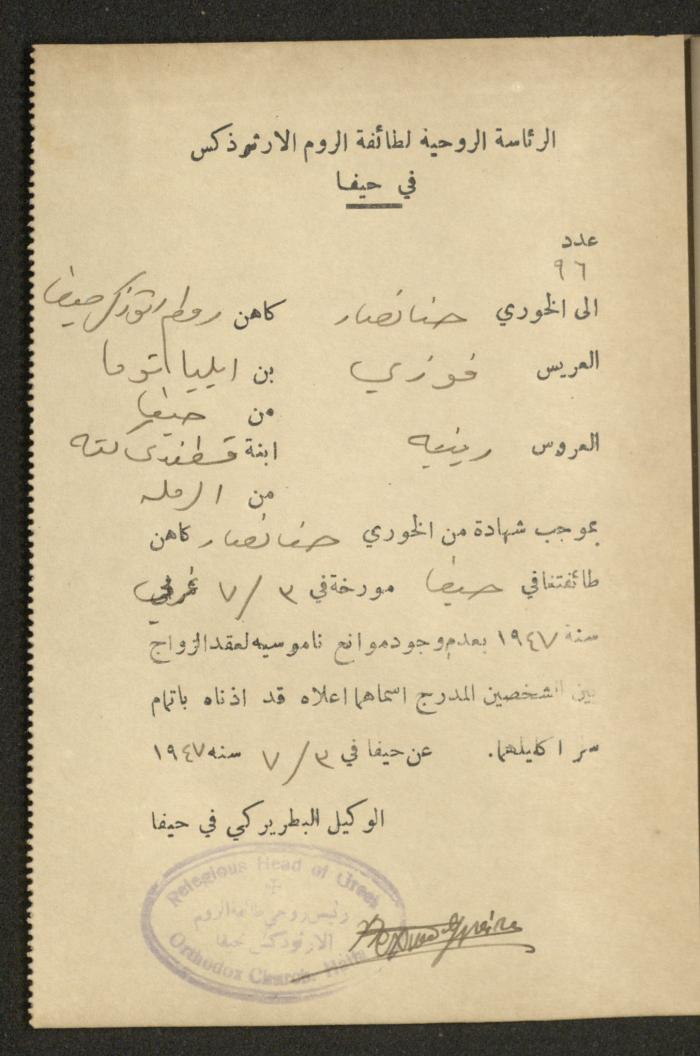 الرئاسة الروحية لطائفة الروم الارثوذكس
في حيفا
عدد
٩٦
الى الخوري حنا نصار كاهن روم ارثوذكس حيفا
العريس فوزي بن ايليا توما
من حيفا
العروس رينيه ابنة قسطندي
من الرمله
بموجب شهادة من الخوري حنا نصار كاهن
طائفتنا في حيفا مورخة في ٣ / ٧ غربي
سنة ١٩٤٧ بعدم وجود موانع ناموسيه لعقد الزواج
بين الشخصين المدرج اسماهما اعلاه قد اذناه باتمام
سر اكليلهما. عن حيفا في ٣ / ٧ سنه ١٩٤٧
الوكيل البطريركي في حيفا
Relegious Head of Greek
رئيس روحي طائفة الروم
الارثوذكس حيفا
Orthodox Church. Haifa